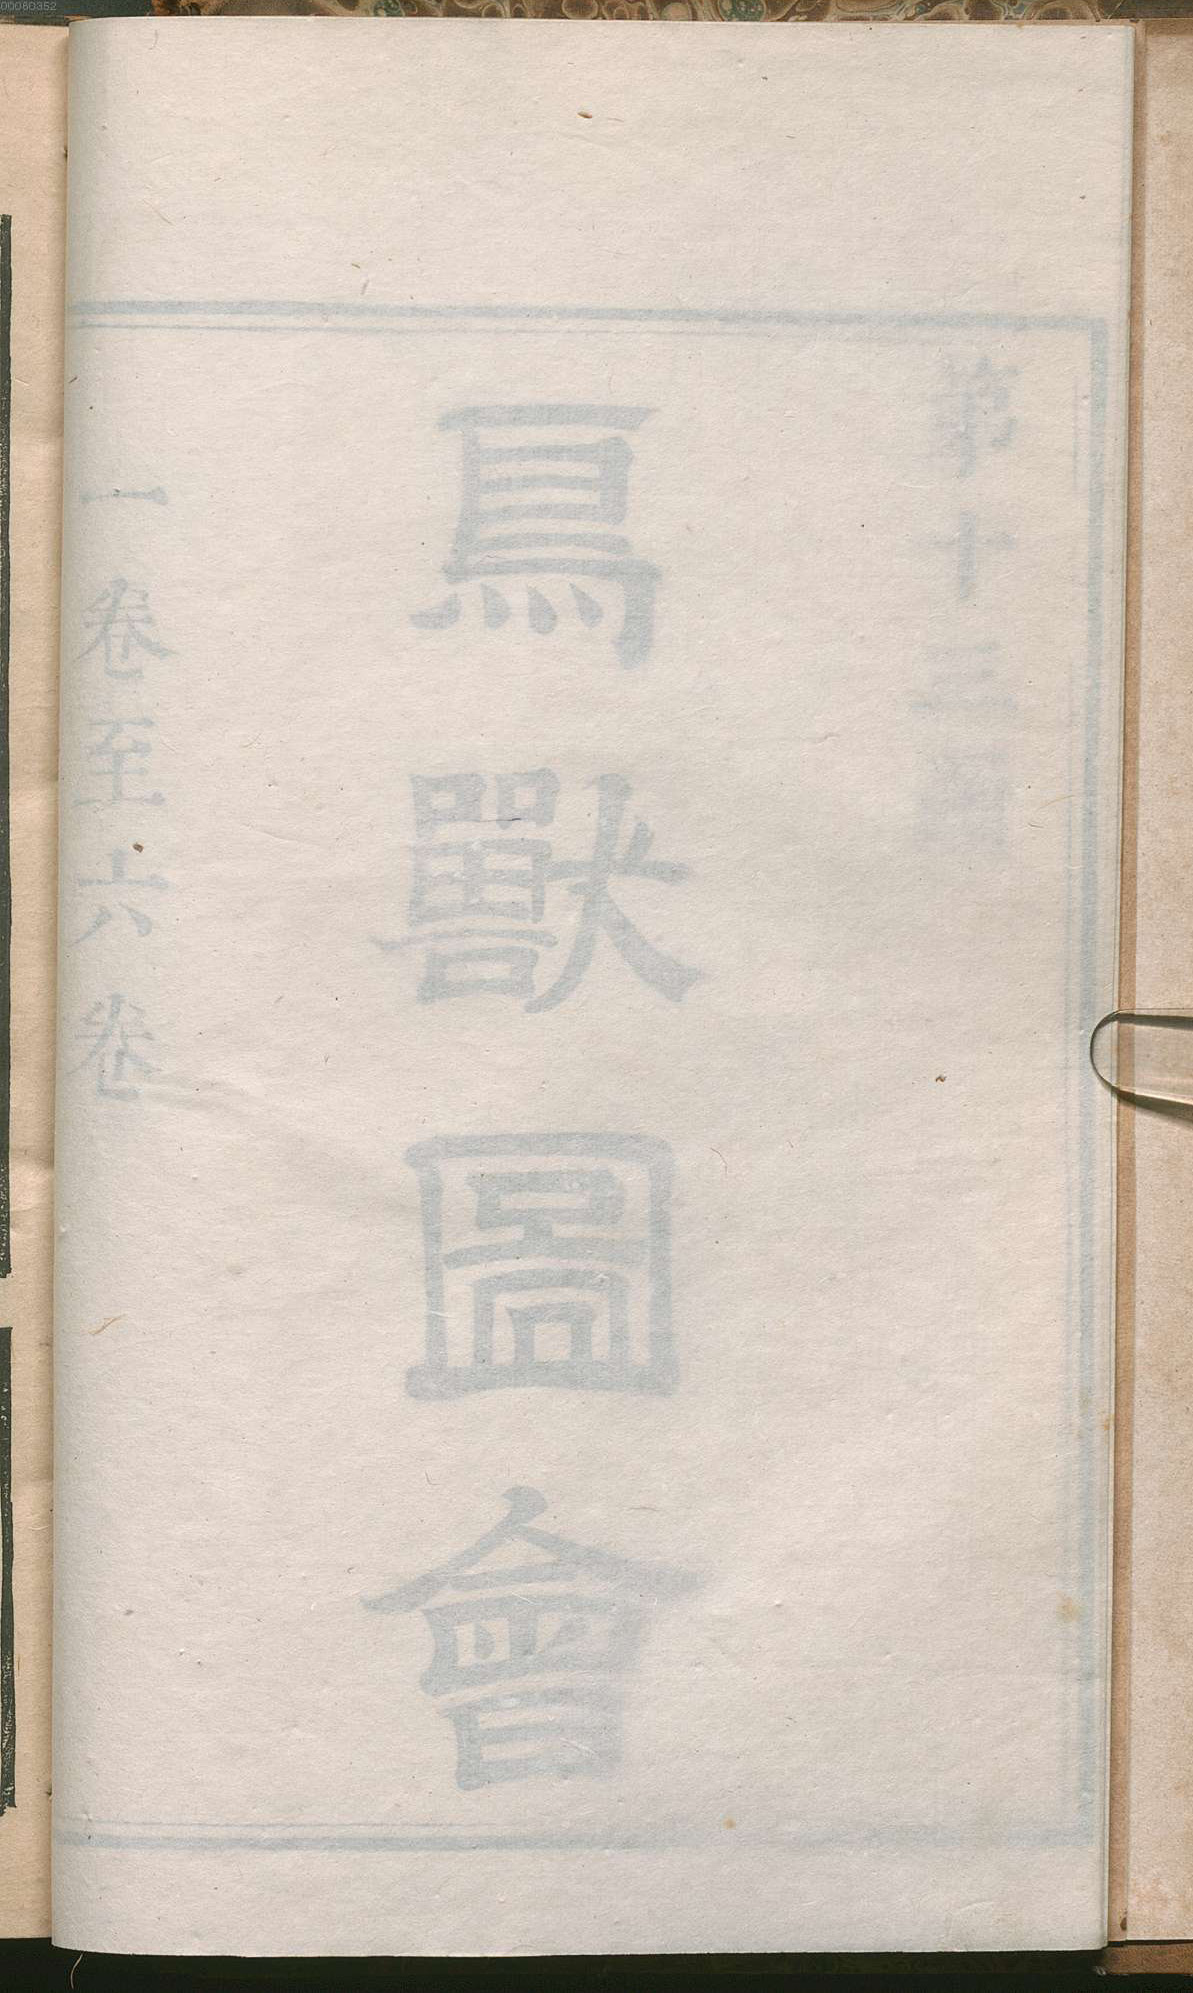 00060352
第十三
鳥獸圖會
一卷至六卷